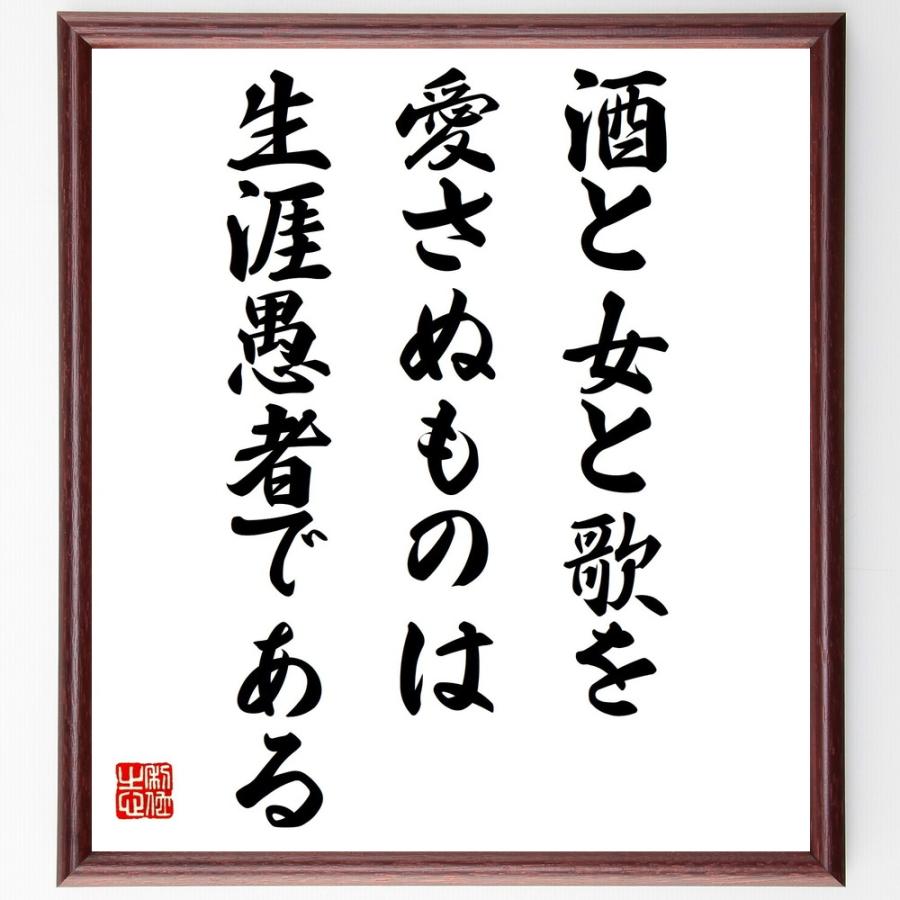 酒と女と歌を
愛さぬものは
生涯愚者である